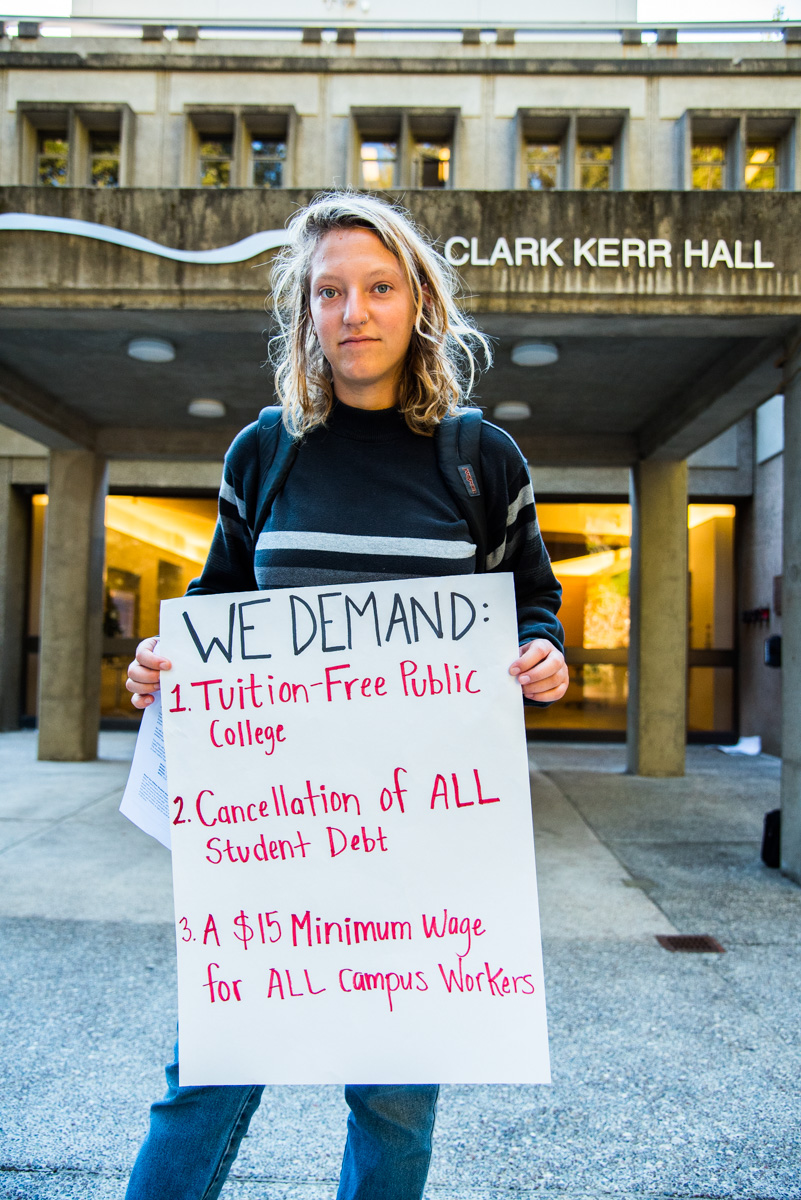 CLARK KERR HALL
WE DEMAND:
1. Tuition-Free Public
College
2. Cancellation of ALL
Student Debt
3. A $15 Minimum Wage
for ALL campus Workers